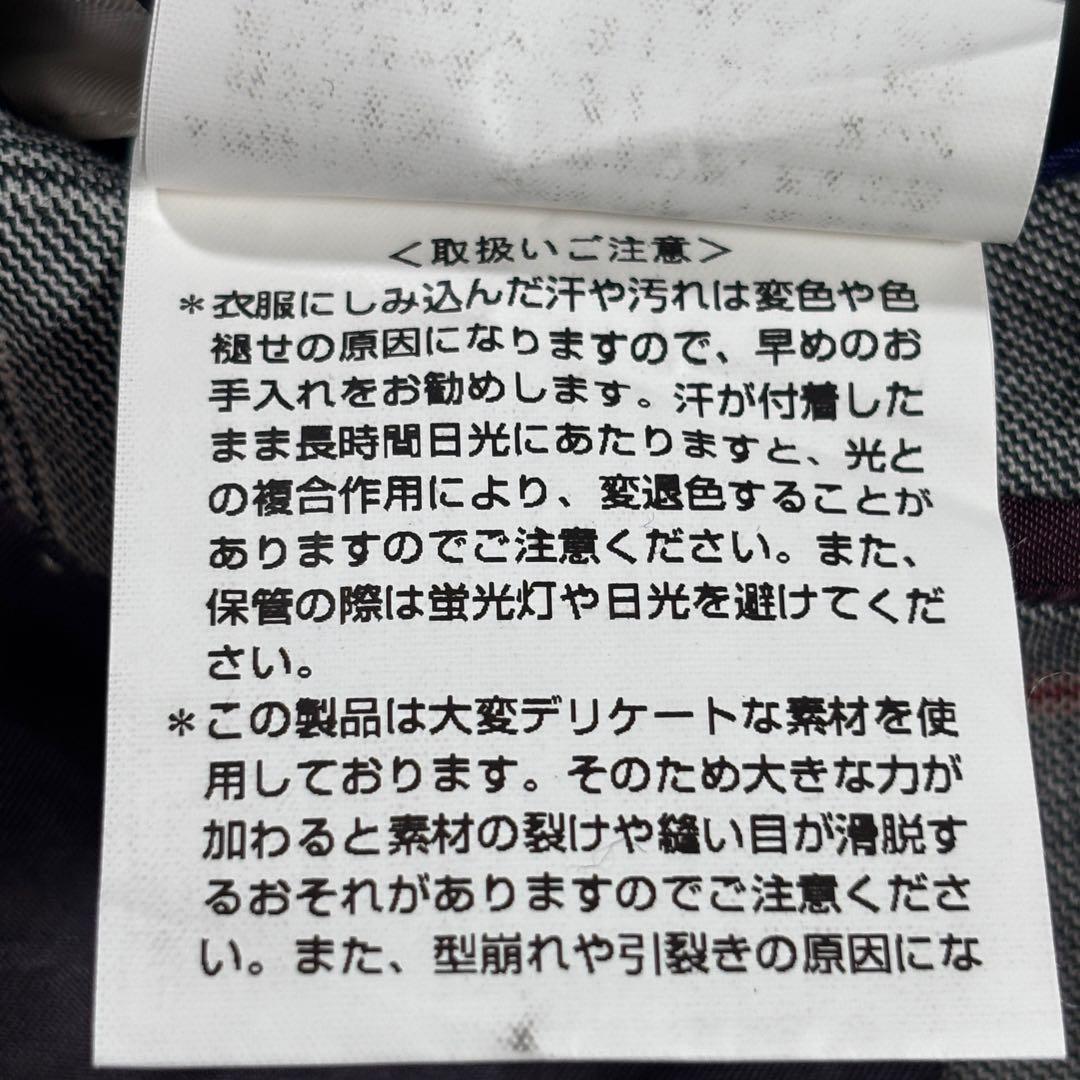 ＜取扱いご注意＞
＊衣服にしみ込んだ汗や汚れは変色や色
褪せの原因になりますので、早めのお
手入れをお勧めします。汗が付着した
まま長時間日光にあたりますと、光と
の複合作用により、変退色することが
ありますのでご注意ください。また、
保管の際は蛍光灯や日光を避けてくだ
さい。
＊この製品は大変デリケートな素材を使
用しております。そのため大きな力が
加わると素材の裂けや縫い目が滑脱す
るおそれがありますのでご注意くださ
い。また、型崩れや引裂きの原因にな